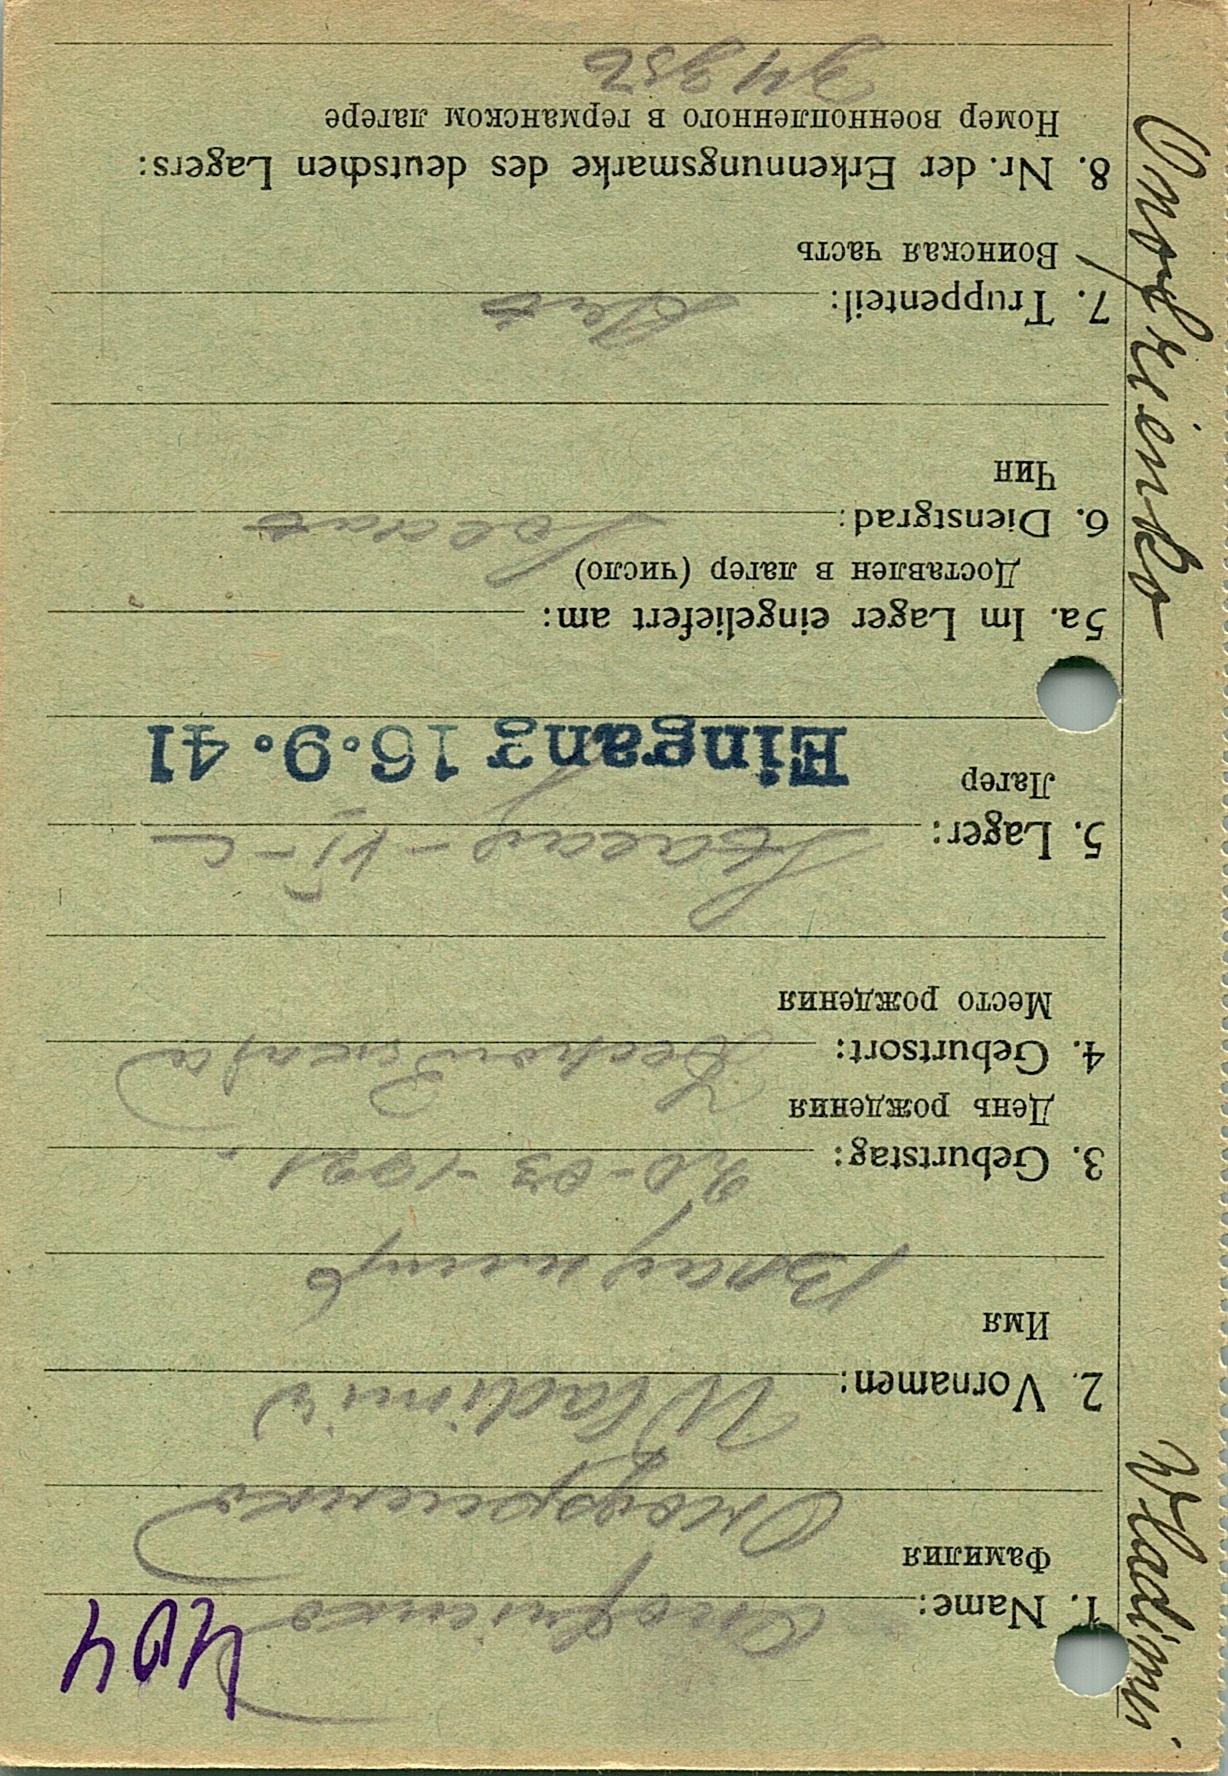 Onofrienko Wladimir
404
1. Name: Onofrienko
Фамилия
Онофриенко
2. Vornamen: Wladimir
Имя
Владимир
3. Geburtstag: 20-03-1921.
День рождения
4. Geburtsort:
Место рождения
5. Lager: Stalag-VI-C
Лагер
Eingang 16.9.41
5a. Im Lager eingeliefert am:
Доставлен в лагер (число)
6. Dienstgrad: Soldat
Чин
7. Truppenteil:
Воинская часть
8. Nr. der Erkennungsmarke des deutschen Lagers:
Номер военнопленного в германском лагере